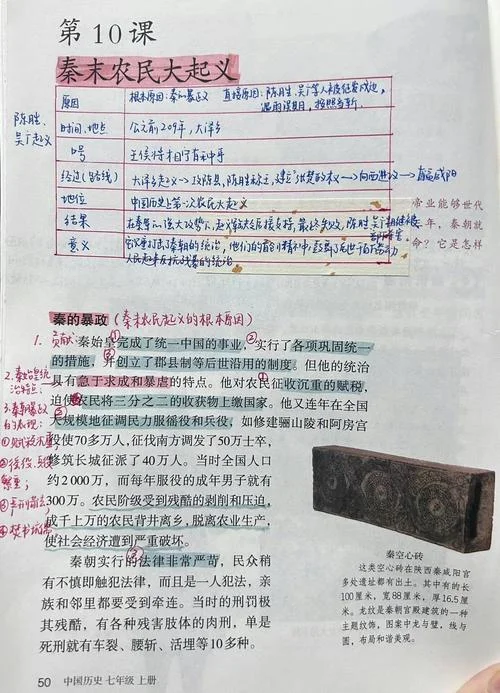 第10课
秦末农民大起义
陈胜、
吴广起义
原因
根本原因:秦的暴政 直接原因:陈胜、吴广等人被征发戍边,
遇雨误期,按照当斩
时间、地点
公元前209年,大泽乡
口号
王侯将相宁有种乎
经过(路线)
大泽乡起义→攻陈县,陈胜称王,建立张楚政权→向西进攻→直逼咸阳
地位
中国历史上第一次农民大起义
结果
意义
帝业能够世代
年,秦朝就
命?它是怎样
秦的暴政(秦末农民起义的根本原因)
1. 贡献:秦始皇完成了统一中国的事业,实行了各项巩固统一
的措施,并创立了郡县制等后世沿用的制度。但他的统治
具有急于求成和暴虐的特点。他对农民征收沉重的赋税,
迫使农民将三分之二的收获物上缴国家。他又连年在全国
大规模地征调民力服徭役和兵役,如修建骊山陵和阿房宫
役使70多万人,征伐南方调发了50万士卒,
修筑长城征派了40万人。当时全国人口
约2000万,而每年服役的成年男子就有
300万。农民阶级受到残酷的剥削和压迫,
成千上万的农民背井离乡,脱离农业生产,
使社会经济遭到严重破坏。
秦朝实行的法律非常严苛,民众稍
有不慎即触犯法律,而且是一人犯法,亲
族和邻里都要受到牵连。当时的刑罚极
其残酷,有各种残害肢体的肉刑,单是
死刑就有车裂、腰斩、活埋等10多种。
2. 秦始皇统
治特点:
3. 秦朝暴政
的表现:
秦空心砖
这类空心砖在陕西秦咸阳宫
多处遗址都有出土。其中有的长
100厘米,宽88厘米,厚16.5厘
米。龙纹是秦朝宫殿建筑的一种
主题纹饰,图案中龙与璧,线与
圆,布局和谐美观。
50 中国历史 七年级 上册